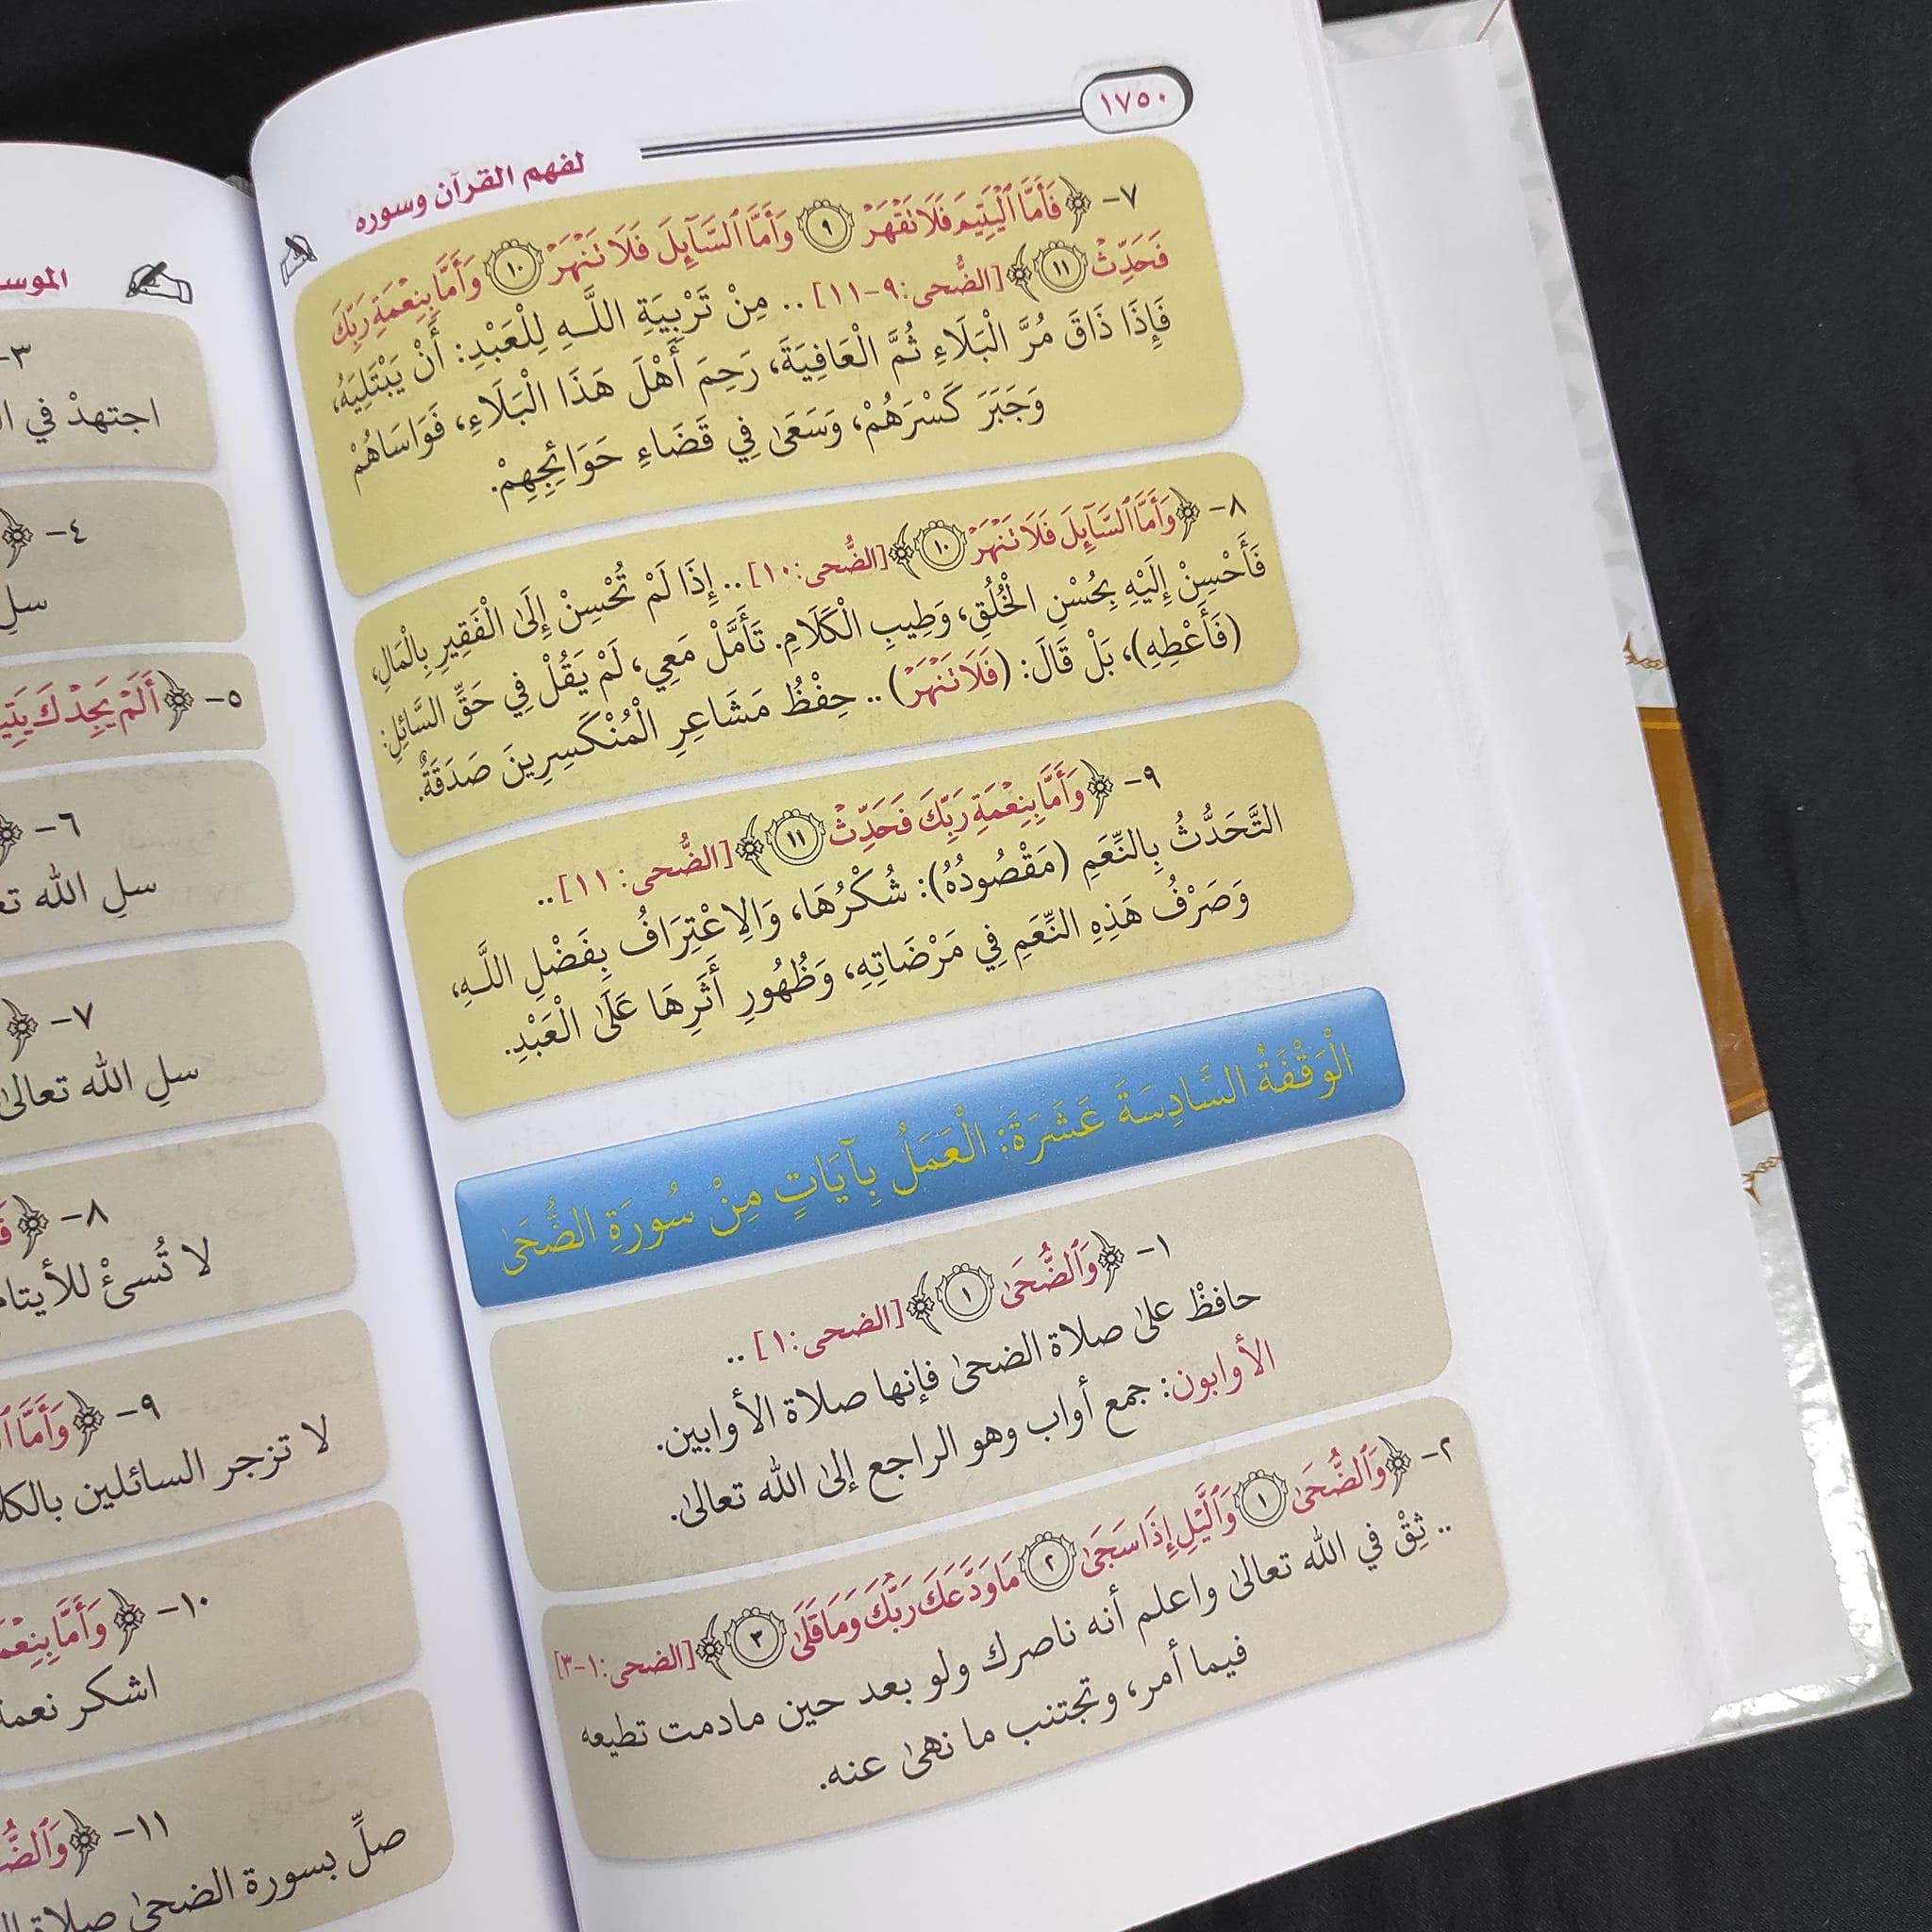 ١٧٥٠
لفهم القرآن وسوره
٧- ﴿فَأَمَّا ٱلْيَتِيمَ فَلَا تَقْهَرْ ٩ وَأَمَّا ٱلسَّآئِلَ فَلَا تَنْهَرْ ١٠ وَأَمَّا بِنِعْمَةِ رَبِّكَ
فَحَدِّثْ ١١﴾ [الضُّحى: ٩-١١] .. مِنْ تَرْبِيَةِ اللَّـهِ لِلْعَبْدِ: أَنْ يَبْتَلِيَهُ،
فَإِذَا ذَاقَ مُرَّ الْبَلَاءِ ثُمَّ الْعَافِيَةَ، رَحِمَ أَهْلَ هَذَا الْبَلَاءِ، فَوَاسَاهُمْ
وَجَبَرَ كَسْرَهُمْ، وَسَعَىٰ فِي قَضَاءِ حَوَائِجِهِمْ.
٨- ﴿وَأَمَّا ٱلسَّآئِلَ فَلَا تَنْهَرْ ١٠﴾ [الضُّحى: ١٠] .. إِذَا لَمْ تُحْسِنْ إِلَىٰ الْفَقِيرِ بِالْمَالِ،
فَأَحْسِنْ إِلَيْهِ بِحُسْنِ الْخُلُقِ، وَطِيبِ الْكَلَامِ. تَأَمَّلْ مَعِي، لَمْ يَقُلْ فِي حَقِّ السَّائِلِ:
(فَأَعْطِهِ)، بَلْ قَالَ: (فَلَا تَنْهَرْ) .. حِفْظُ مَشَاعِرِ الْمُنْكَسِرِينَ صَدَقَةٌ.
٩- ﴿وَأَمَّا بِنِعْمَةِ رَبِّكَ فَحَدِّثْ ١١﴾ [الضُّحى: ١١] ..
التَّحَدُّثُ بِالنِّعَمِ (مَقْصُودُهُ): شُكْرُهَا، وَالِاعْتِرَافُ بِفَضْلِ اللَّـهِ،
وَصَرْفُ هَذِهِ النِّعَمِ فِي مَرْضَاتِهِ، وَظُهُورِ أَثَرِهَا عَلَىٰ الْعَبْدِ.
الْوَقْفَةُ السَّادِسَةَ عَشَرَةَ: الْعَمَلُ بِآيَاتٍ مِنْ سُورَةِ الضُّحَىٰ
١- ﴿وَٱلضُّحَىٰ ١﴾ [الضحى: ١] ..
حافظْ علىٰ صلاة الضحىٰ فإنها صلاة الأوابين.
الأوابون: جمع أواب وهو الراجع إلىٰ الله تعالىٰ.
٢- ﴿وَٱلضُّحَىٰ ١ وَٱلَّيْلِ إِذَا سَجَىٰ ٢ مَا وَدَّعَكَ رَبُّكَ وَمَا قَلَىٰ ٣﴾ [الضحى: ١-٣]
.. ثِقْ في الله تعالىٰ واعلم أنه ناصرك ولو بعد حين مادمت تطيعه
فيما أمر، وتجتنب ما نهىٰ عنه.
٣-
اجتهدْ في
٤- ﴿
سلِ
٥- ﴿أَلَمْ يَجِدْكَ
٦- ﴿
سلِ الله
٧- ﴿
سلِ الله تعالىٰ
٨- ﴿
لا تُسئْ للأيتام
٩- ﴿وَأَمَّا
لا تزجر السائلين
١٠- ﴿وَأَمَّا
اشكر
١١- ﴿
صلِّ بسورة الضحىٰ صلاة